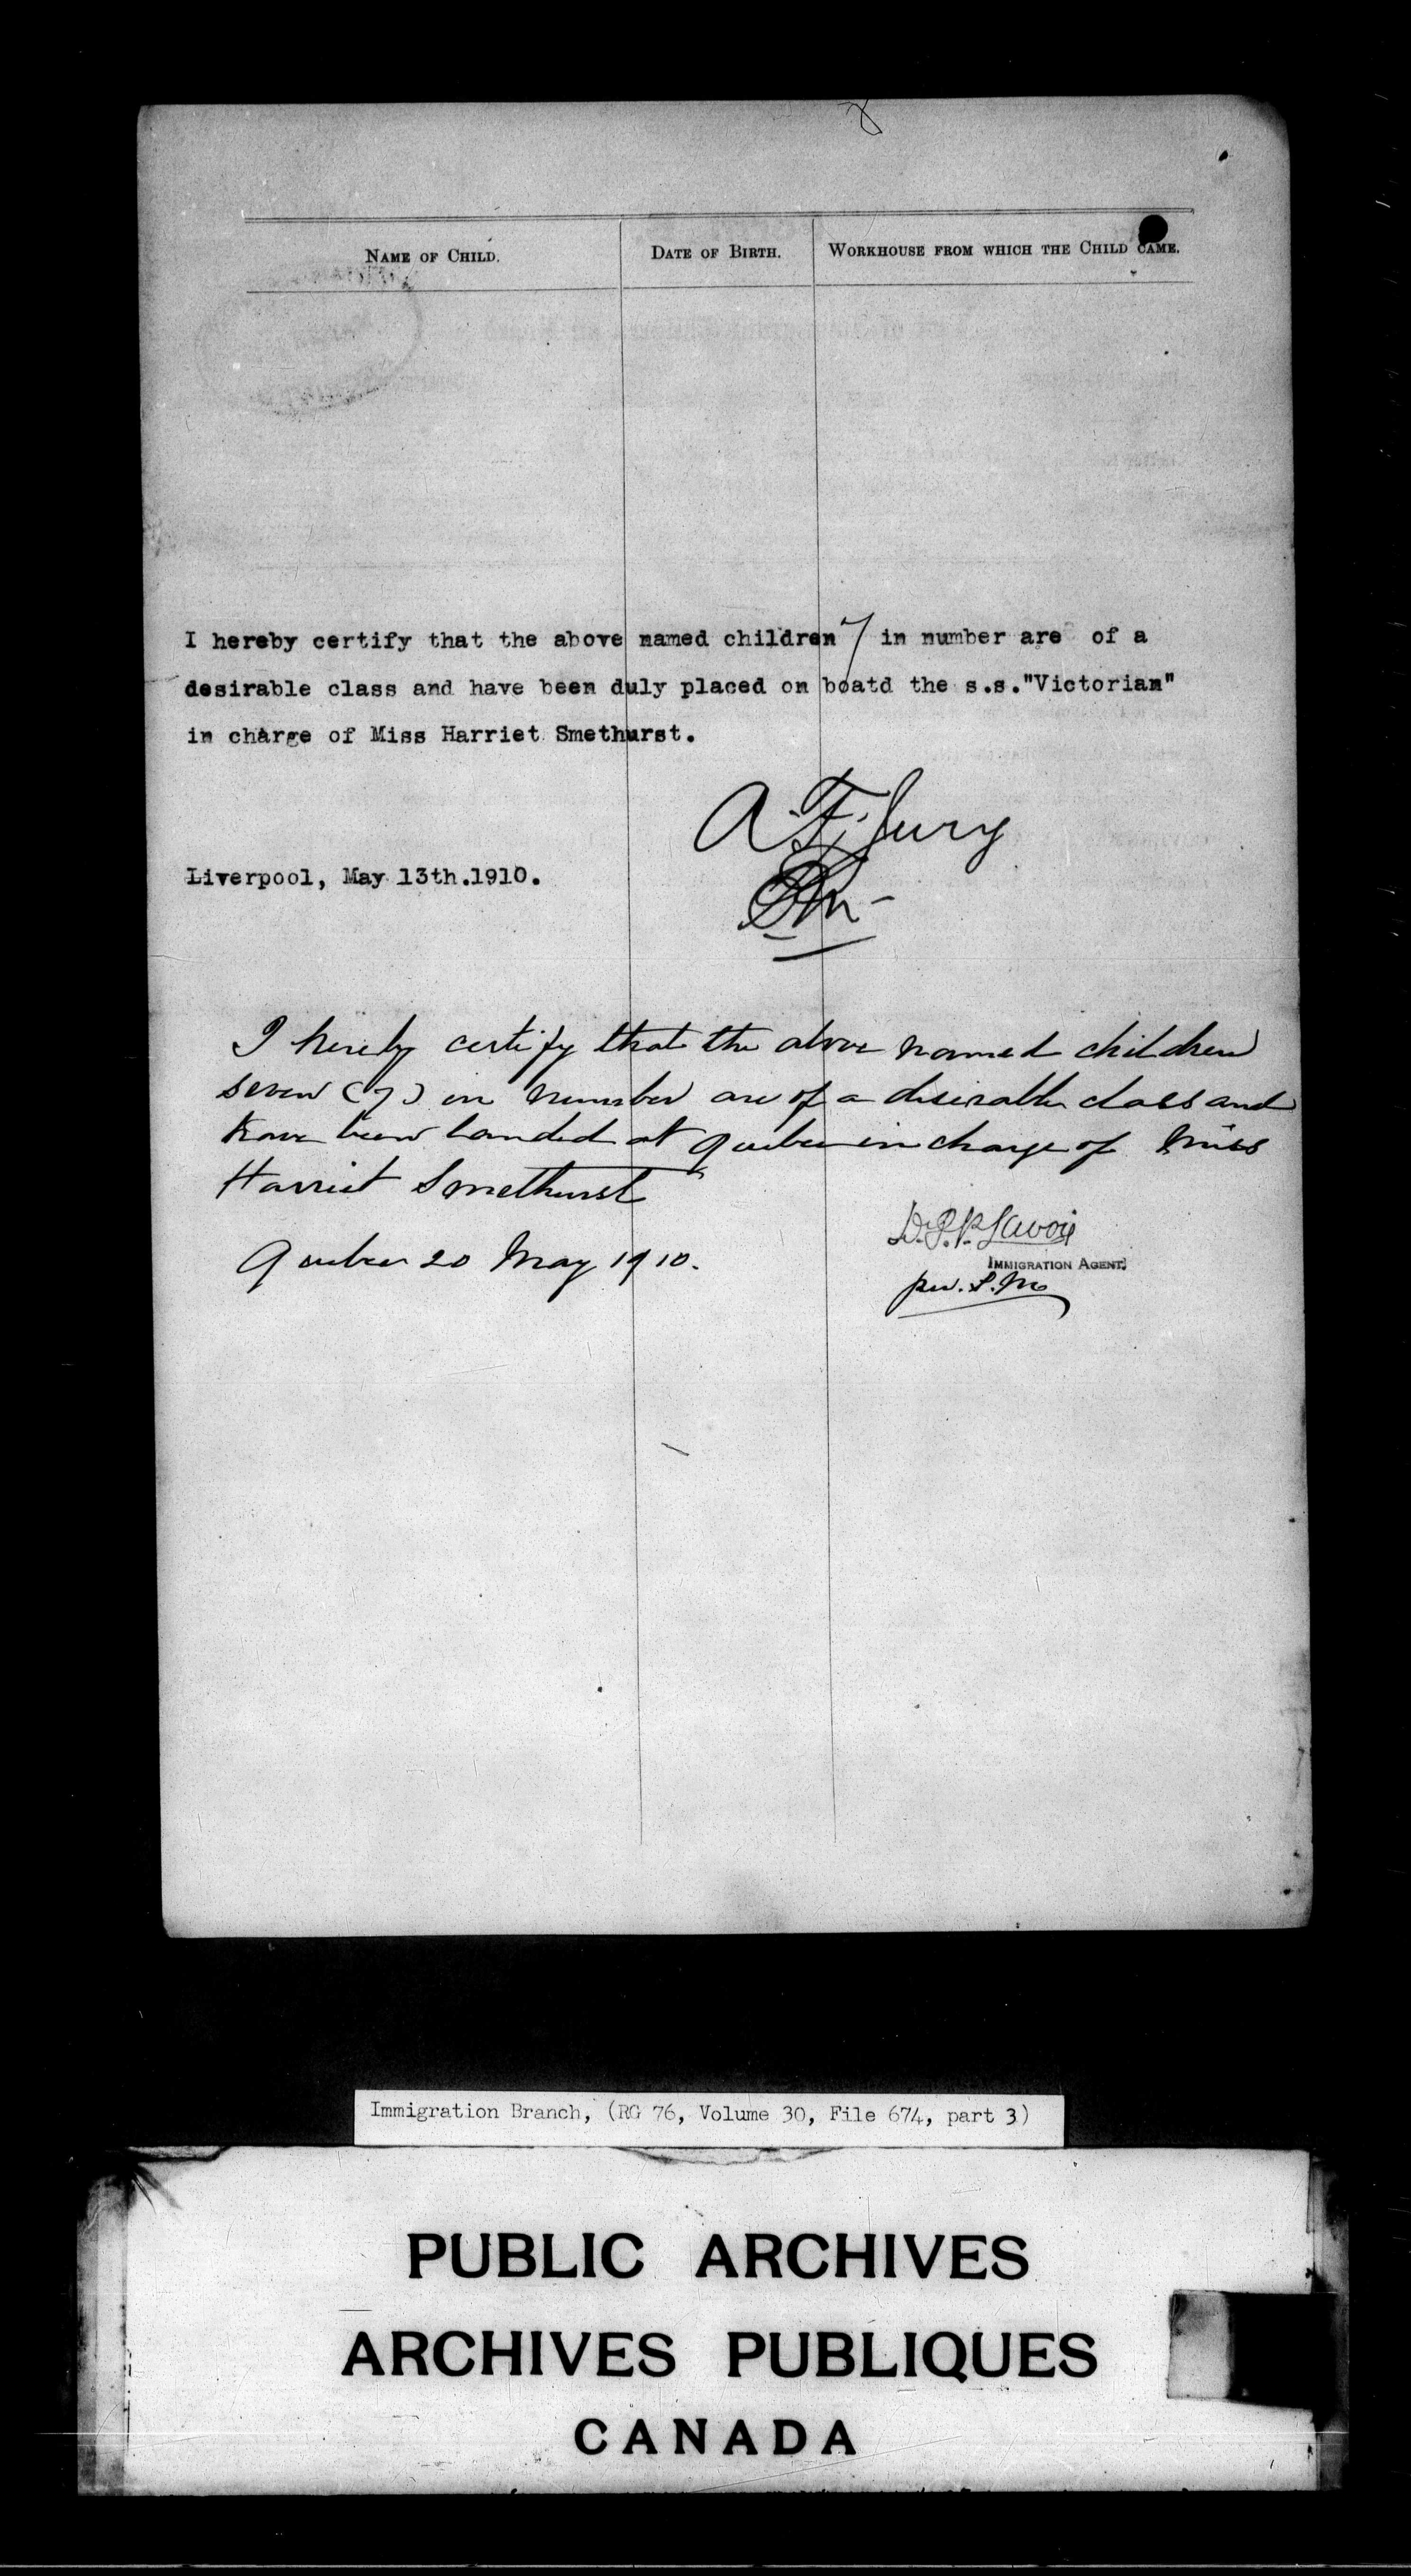 8
NAME OF CHILD. DATE OF BIRTH. WORKHOUSE FROM WHICH THE CHILD CAME.
I hereby certify that the above named children 7 in number are of a
desirable class and have been duly placed on boatd the s.s."Victorian"
in charge of Miss Harriet Smethurst.
A.F. Jury
Liverpool, May 13th.1910.
I hereby certify that the above named children
seven (7) in number are of a desirable class and
have been landed at Quebec in charge of Miss
Harriet Smethurst
Quebec 20 May 1910.
Lavoie
IMMIGRATION AGENT
per. L.M
Immigration Branch, (RG 76, Volume 30, File 674, part 3)
PUBLIC ARCHIVES
ARCHIVES PUBLIQUES
CANADA